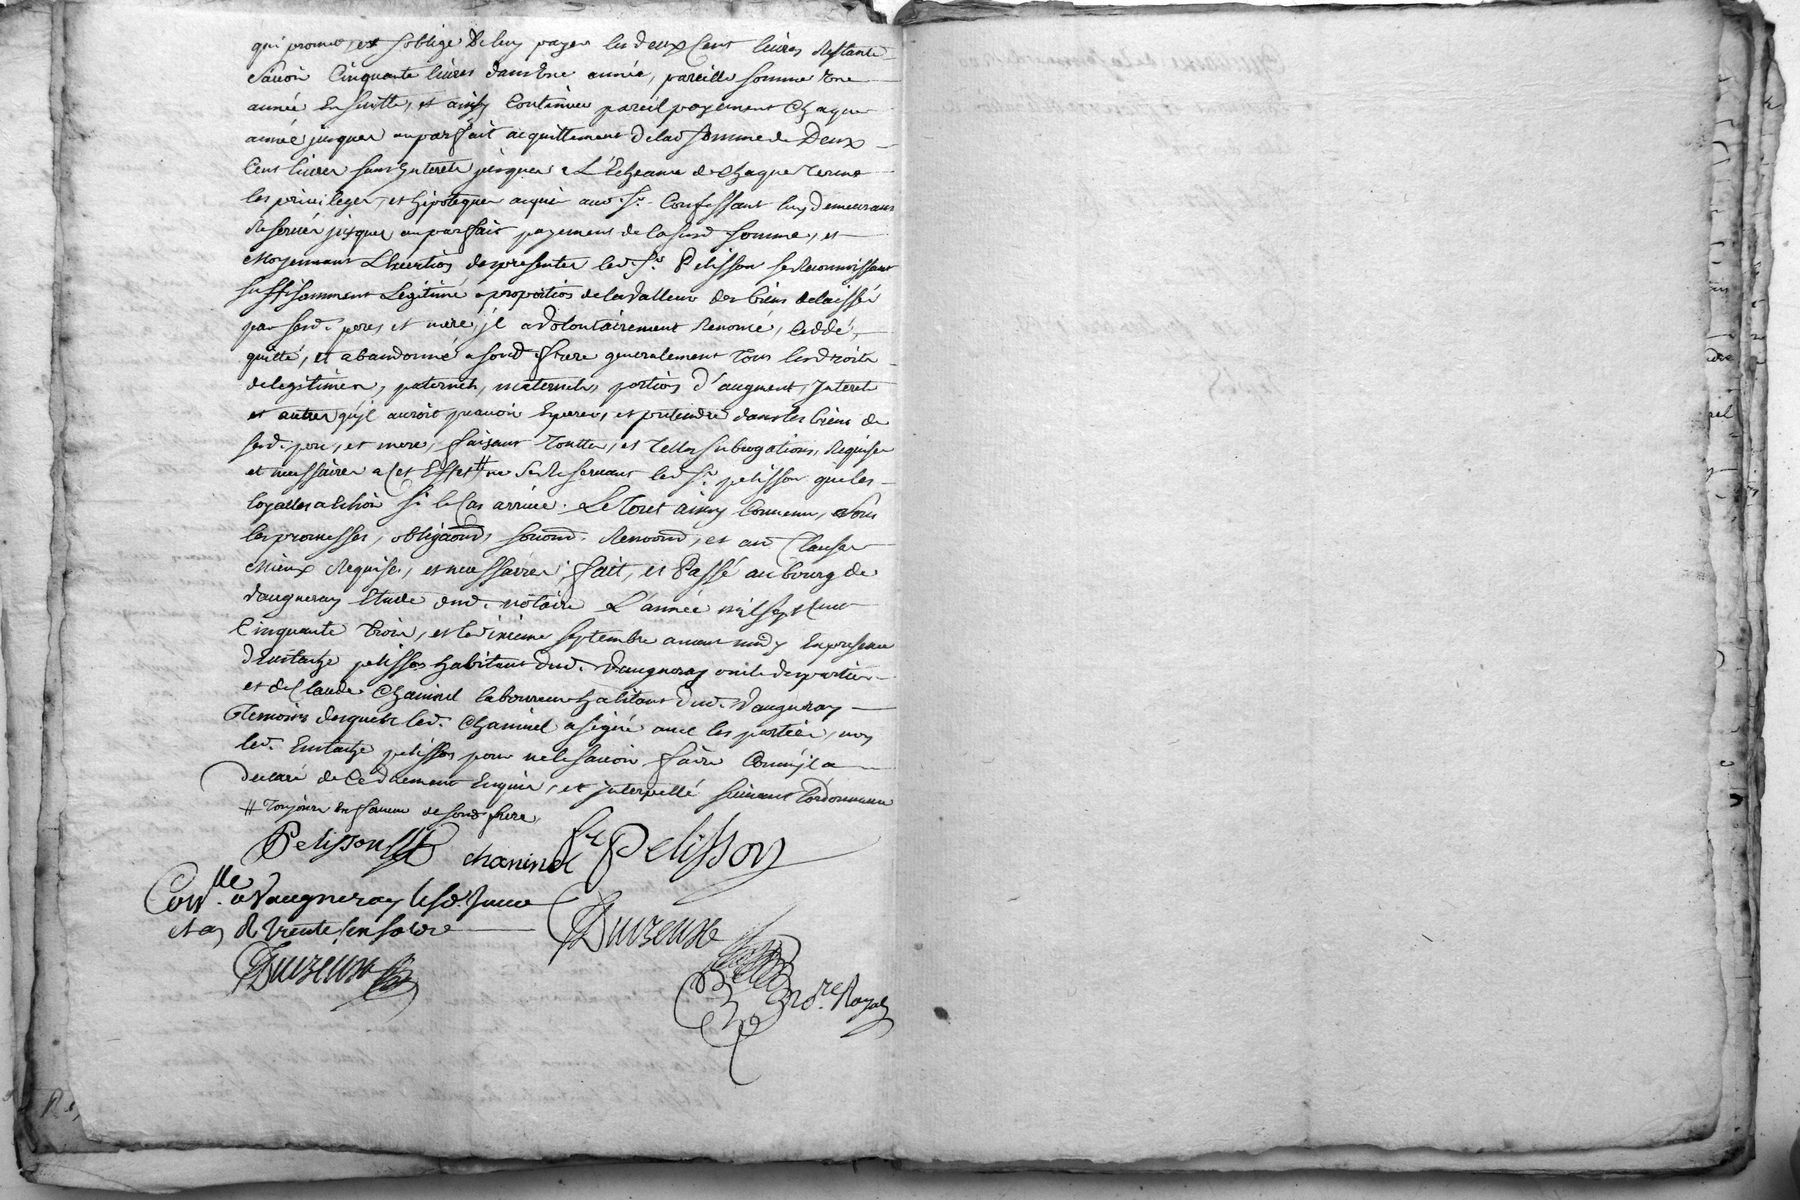 qui promet, et s'oblige de luy payer les deux Cent livres Restante
Savoir Cinquante livres dans Une année, pareille somme Une
année En suitte, et ainsy Continuer pareil payement Chaque
année jusques au parfait acquittement delad somme de Deux
Cent livres sans Interets jusques a L'Echeance de Chaque terme
les privileges, et hipoteques acquis aud. Sr. Confessant luy demeurans
Reservés jusques au parfait payement de lasusd somme, et
Moyennant des presentes led. Sr. Pelisson se Reconnoissant
suffisamment Legitimé a proportion de la Valleur des biens delaissés
par sesd. peres et mere, jl a Volontairement Renoncé, Ceddé,
quitté, et abandonné a sond frere generalement Tous les droits
de legitimes, paternels, maternels, portion d'augment, Interets
et autres qu'jl auroit pu avoir Esperer, et pretendre dans les biens de
sesd. pere, et mere, faisant Toutte, et Telles subrogations, Requises
et necessaires a Cet Effet # ne se Reservant led. Sr. pelisson que les
loyalles Echoir si le Cas arrive. Le Tout ainsy Convenu, Sous
les promesses, obligaons, soumons. Renoonds, et aud Clauses
Mieux Requises, et necessaires; fait, et Passé au bourg de
Vaugneray Etude dud. notaire L'année mil sept Cent
Cinquante trois, et le dixieme septembre avant midy En presence
d'Eustache pelisson habitant dud. Vaugneray oncle des parties
et de Claude Chaninel laboureur habitant dud. Vaugneray
Temoins desquels led. Chaninel a signé avec les parties, non
led. Eustache pelisson pour ne le savoir faire Comm'jl a
declaré de Ce duement Enquis, et Interpellé suivant l'ordonnance
# Toujours En faveur de sond frere.
Pelisson chaninel fr Pelisson
Conlle. a Vaugneray le sd.
et a Rs trente
Duizeux
Duizeux
nore. Royal